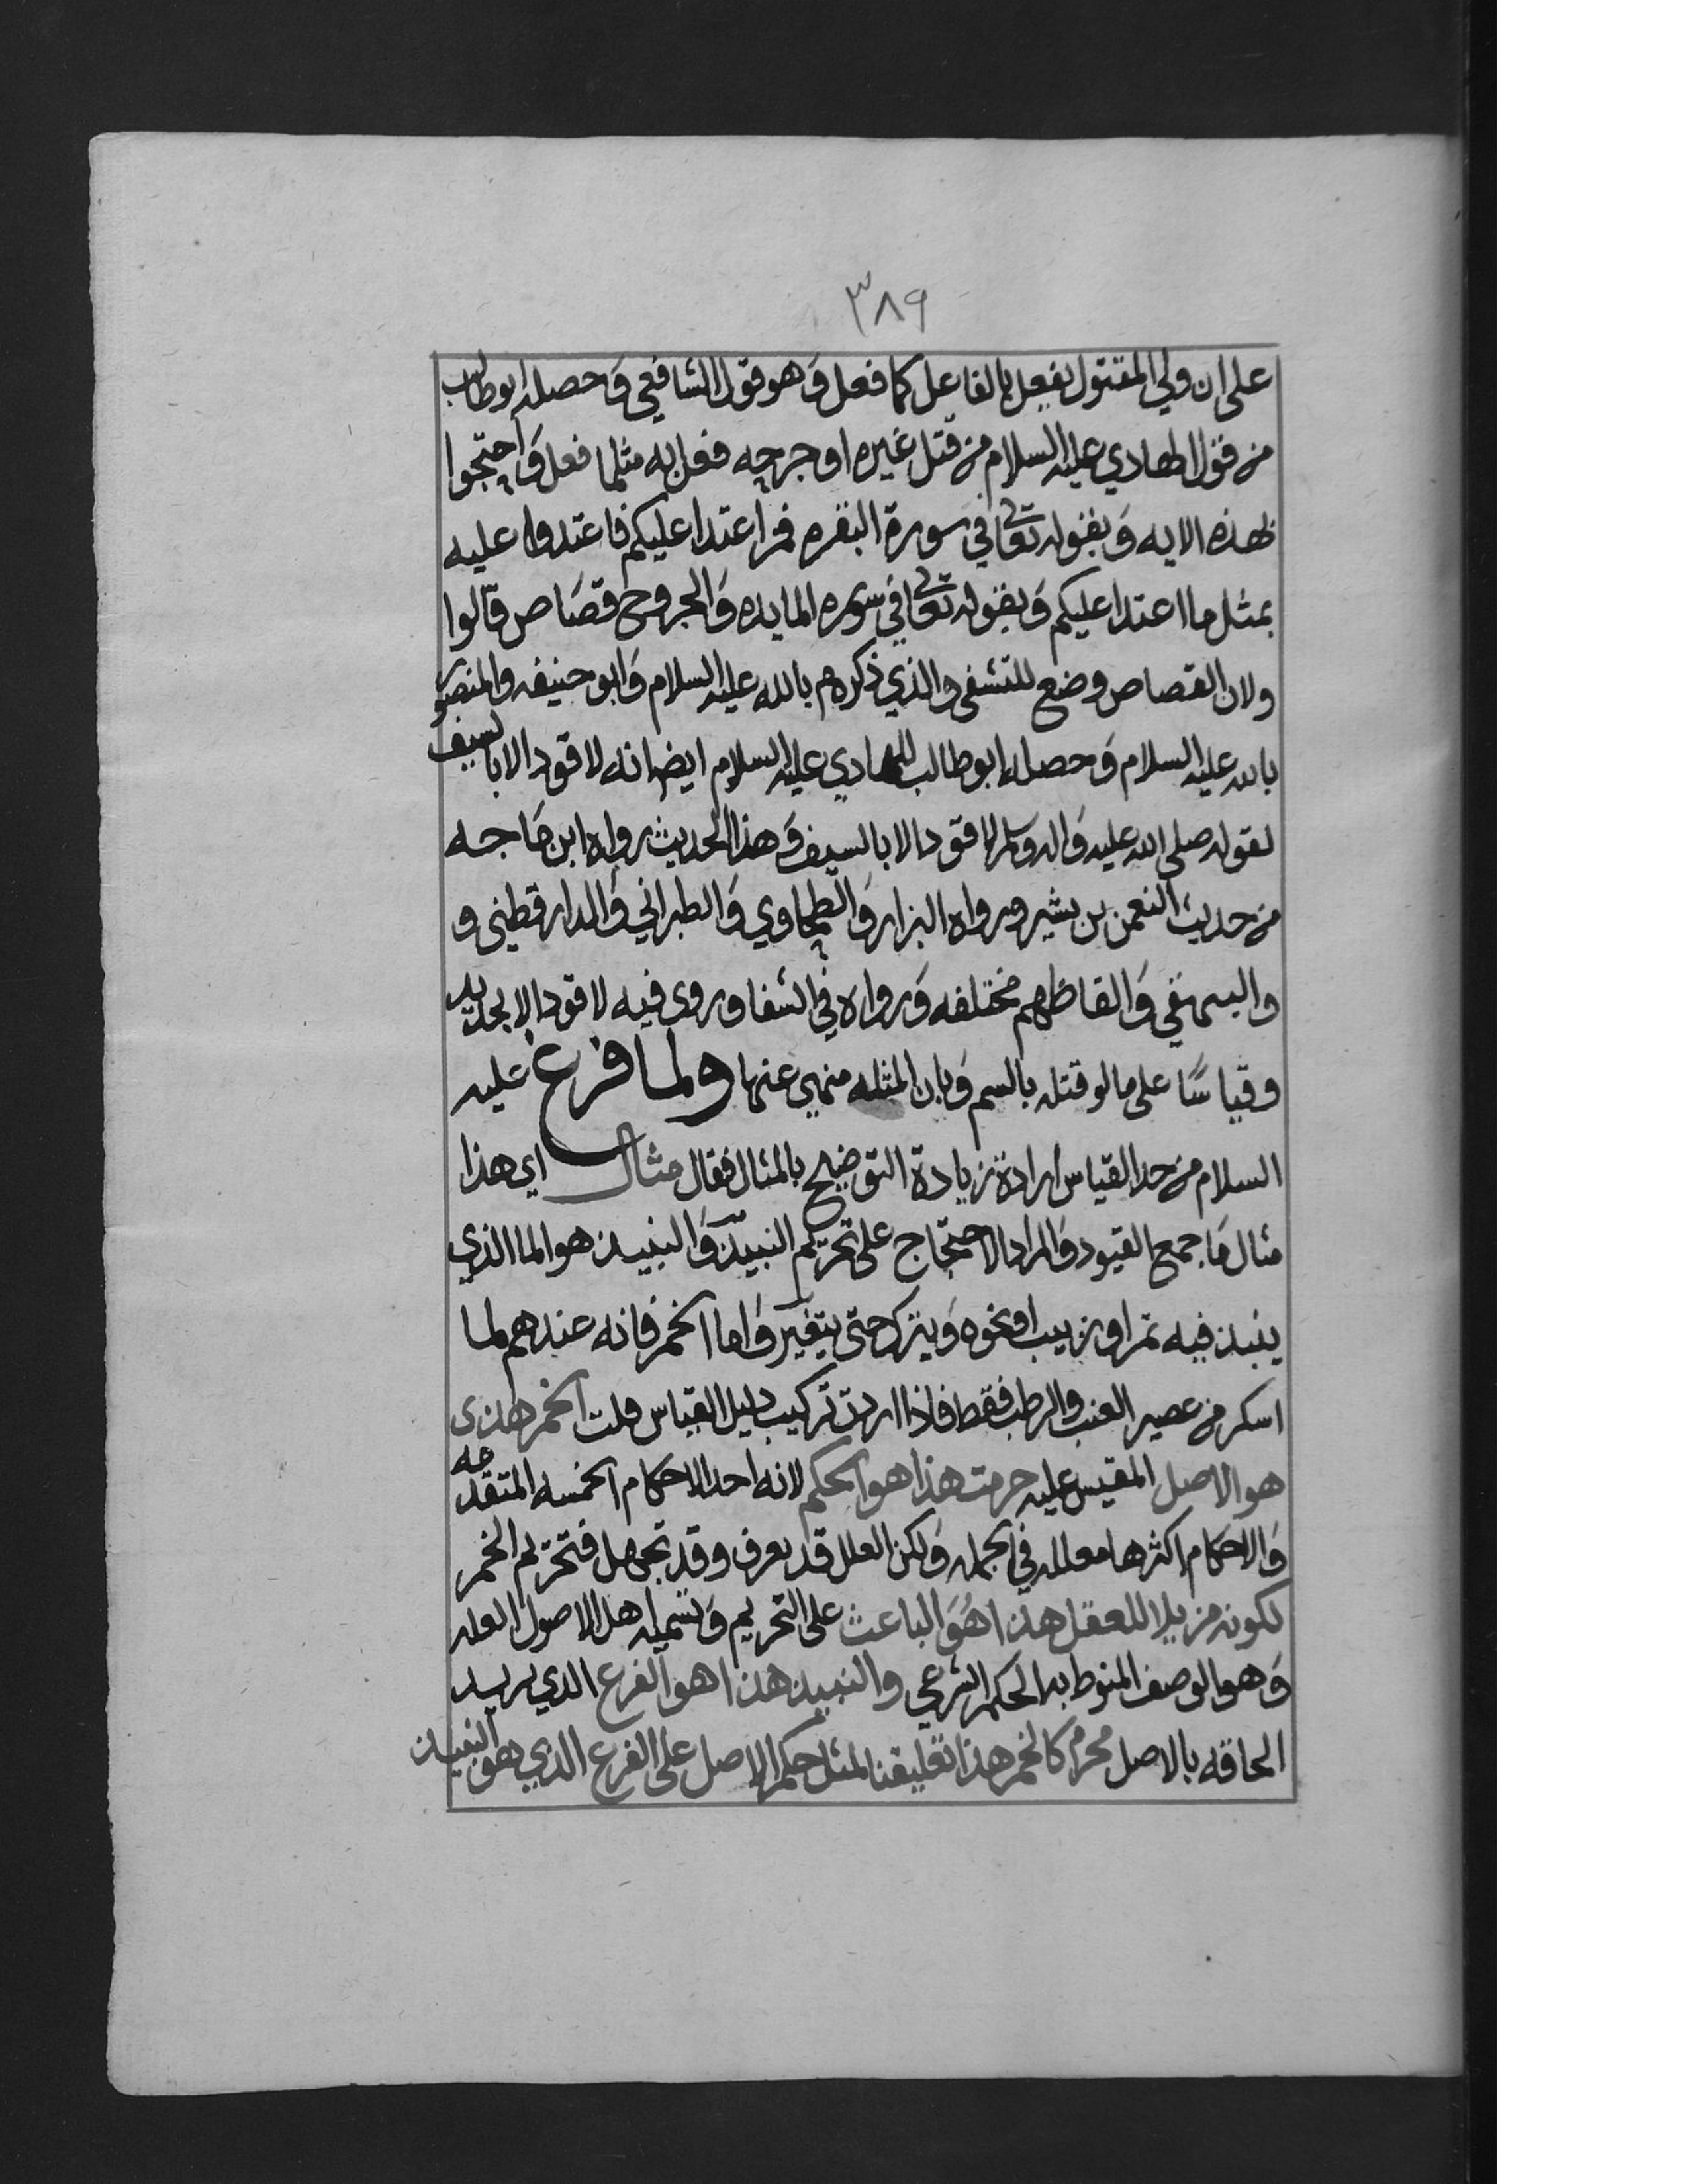 ٣٨٩
على ان ولي المقتول يفعل بالفاعل كما فعل وهو قول الشافعي وحصله ابو طالب
من قول الهادي عليه السلام من قتل غيره او جرحه فعل به مثلما فعل واحتجوا
بهذه الايه وبقوله تعالى في سورة البقره فمن اعتدا عليكم فاعتدوا عليه
بمثل ما اعتدا عليكم وبقوله تعالى في سوره المايده والجروح قصاص قالوا
ولان القصاص وضع للتشفى والذي ذكره م بالله عليه السلام وابو حنيفه والمنصور
بالله عليه السلام وحصله ابو طالب للهادي عليه السلام ايضا انه لا قود الا بالسيف
لقوله صلى الله عليه واله وسلم لا قود الا بالسيف وهذا الحديث رواه ابن ماجه
من حديث النعمن بن بشير ورواه البزار والطحاوي والطبراني والدارقطني و
والبيهقي والفاظهم مختلفه ورواه في الشفا وروى فيه لا قود الا بحديد
وقياسًا على ما لو قتله بالسم وبان المثله منهي عنها ولما فرغ عليه
السلام من حد القياس اراد زيادة التوضيح بالمثال فقال مثال اي هذا
مثال ما جمع القيود والمراد الاحتجاج على تحريم النبيذ والنبيذ هو الما الذي
ينبذ فيه تمر او زبيب او نحوه ويترك حتى يتغير واما الخمر فانه عندهم لما
اسكر من عصير العنب والرطب فقط فاذا اردت تركيب دليل القياس قلت الخمر هذى
هو الاصل المقيس عليه حرمت هذا هو الحكم لانه احد الاحكام الخمسه المتقدمه
والاحكام اكثرها معلله في الجمله ولكن العلل قد يعرف وقد تجهل فتحريم الخمر
لكونه مزيلا للعقل هذا هو الباعث على التحريم وتسميه اهل الاصول العله
وهو الوصف المنوط به الحكم الشرعي والنبيذ هذا هو الفرع الذي يريد
الحاقه بالاصل محرم كالخمر هذا تعليقنا لمثل حكم الاصل على الفرع الذي هو النبيذ